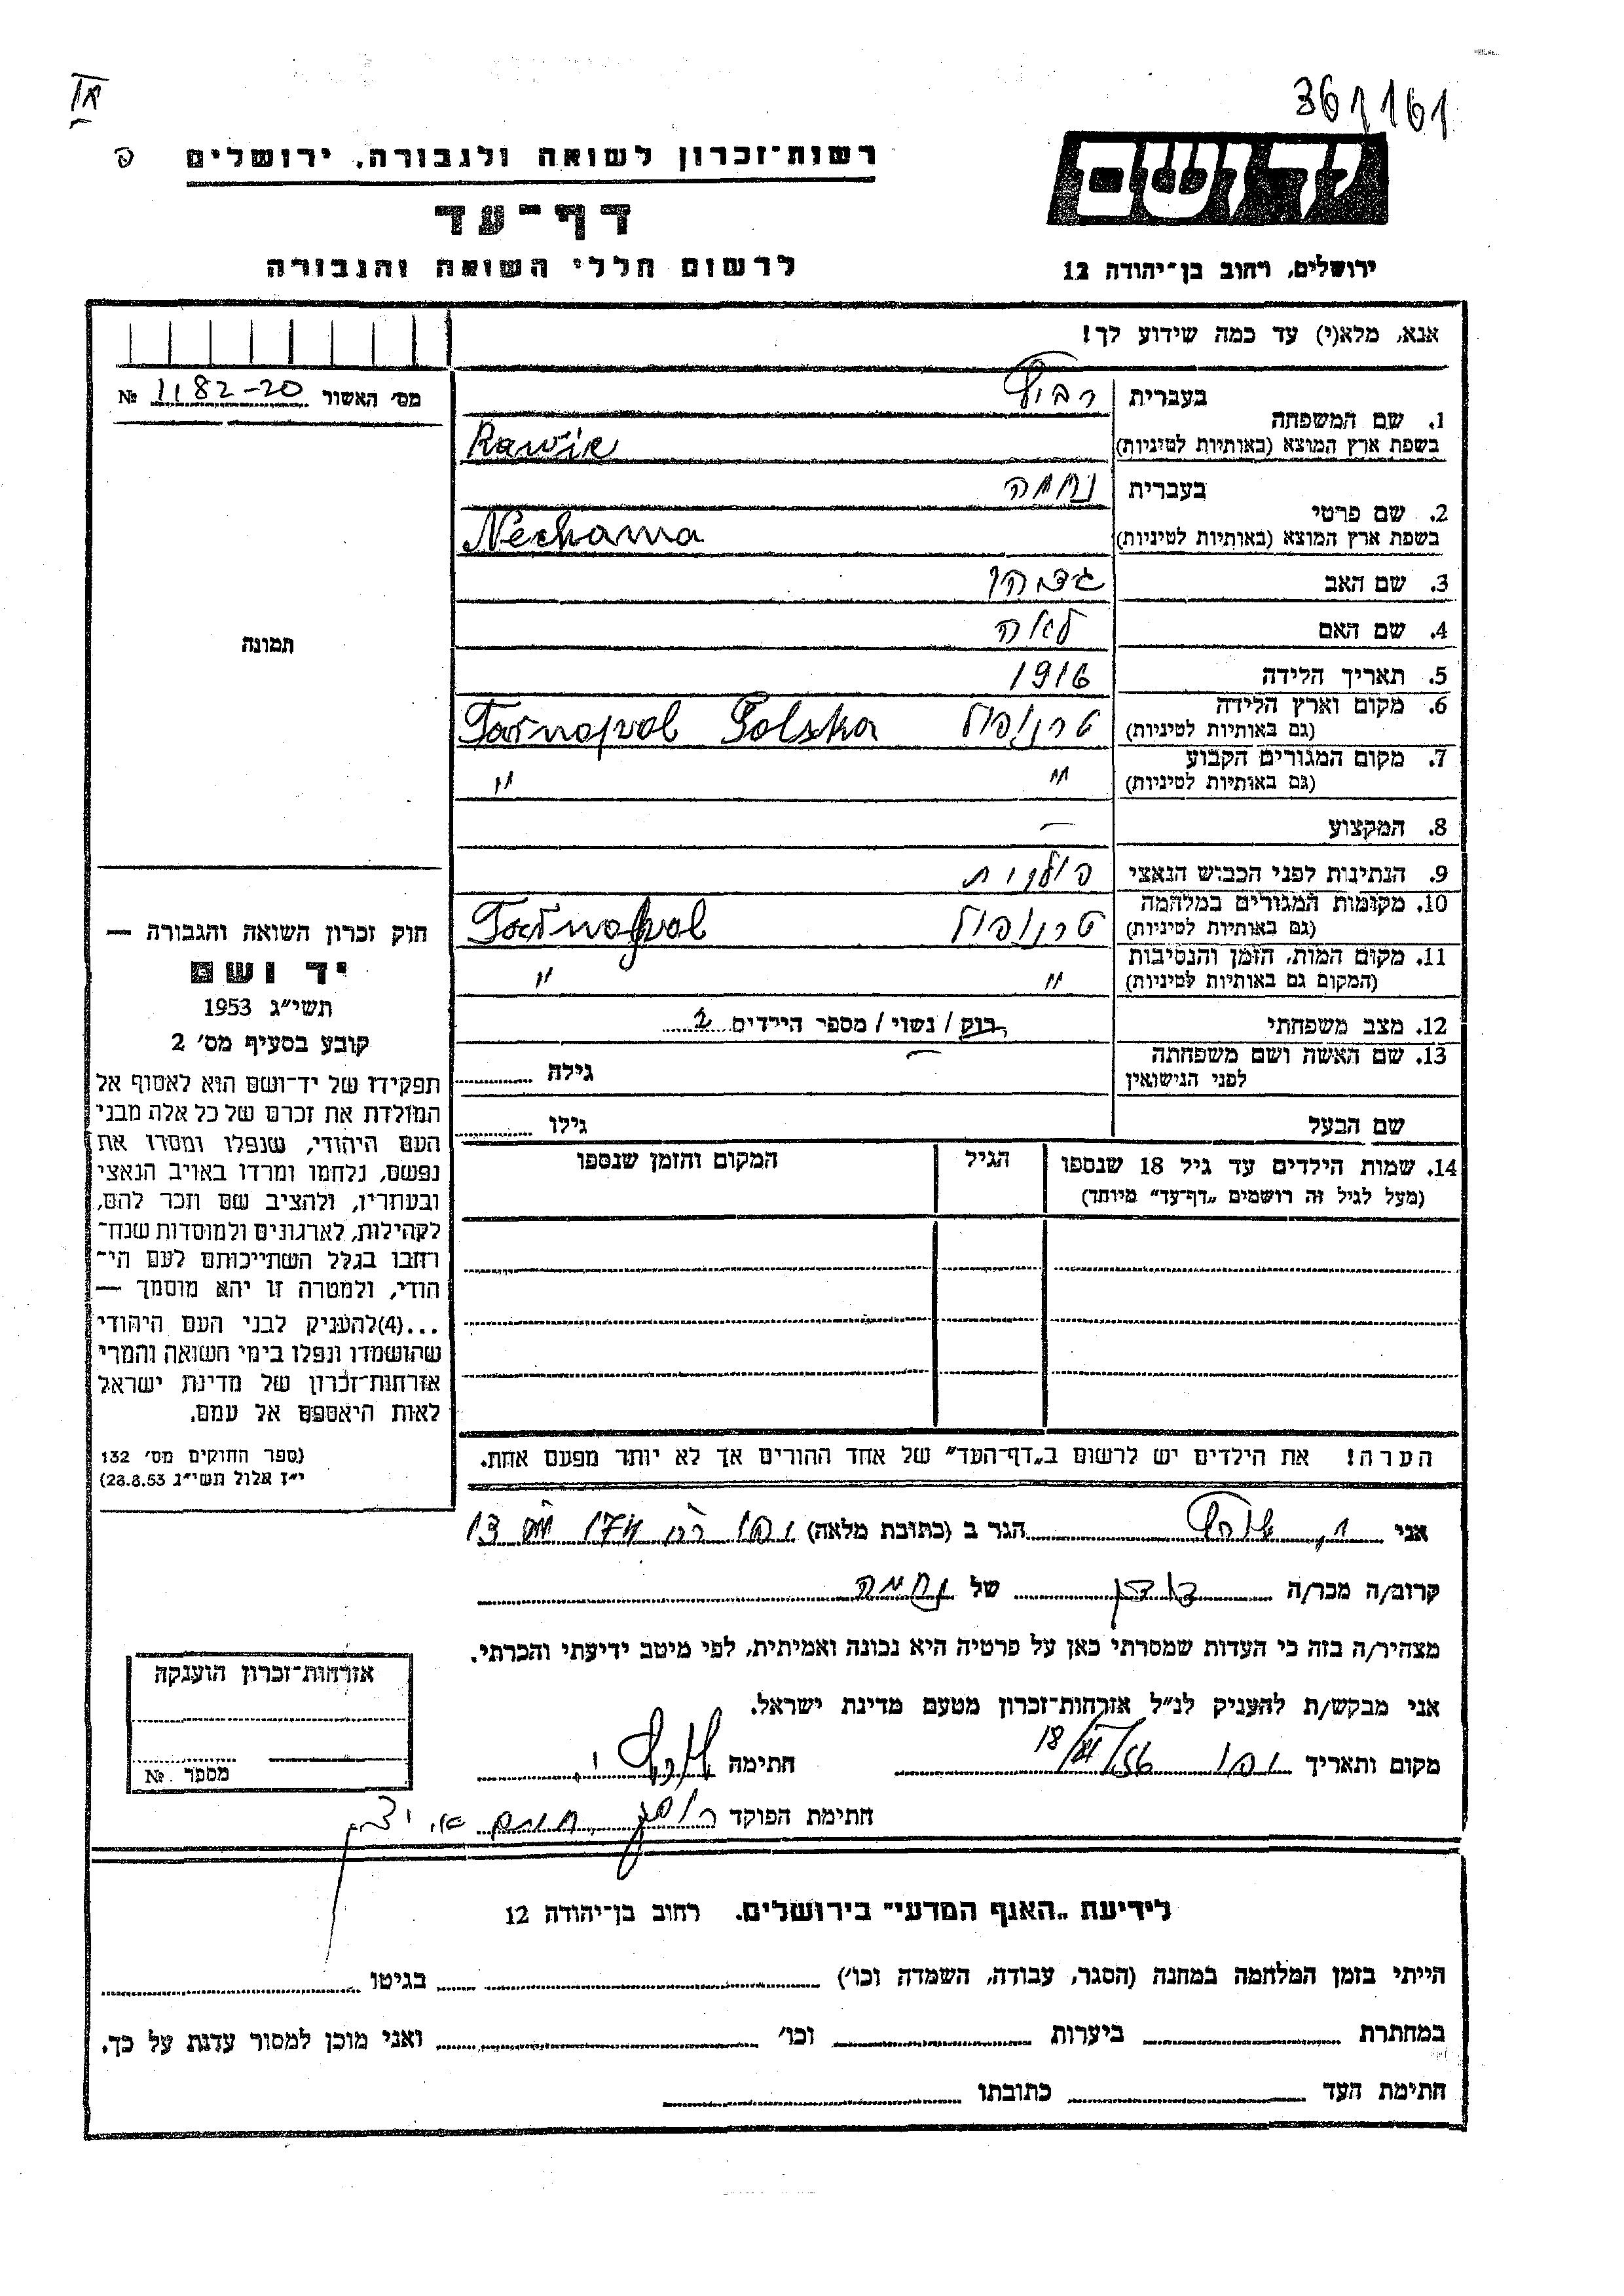 361161
רשות־זכרון לשואה ולגבורה, ירושלים
יד ושם
דף־עד
לרשום חללי השואה והגבורה
ירושלים, רחוב בן־יהודה 12
אנא, מלא(י) עד כמה שידוע לך!
מס׳ האשור 1182-20 №
1. שם המשפחה
בעברית
בשפת ארץ המוצא (באותיות לטיניות) Rawir
2. שם פרטי
בעברית נחמה
בשפת ארץ המוצא (באותיות לטיניות) Nechama
3. שם האב
4. שם האם לאה
5. תאריך הלידה 1916
6. מקום וארץ הלידה
(גם באותיות לטיניות) טרנופול Tarnopol Polska
7. מקום המגורים הקבוע
(גם באותיות לטיניות) " "
8. המקצוע —
9. הנתינות לפני הכבוש הנאצי פולנית
10. מקומות המגורים במלחמה
(גם באותיות לטיניות) טרנופול Tarnopol
11. מקום המות, הזמן והנסיבות
(המקום גם באותיות לטיניות) " "
12. מצב משפחתי רוק / נשוי / מספר הילדים 2
13. שם האשה ושם משפחתה
לפני הנישואין — גילה
שם הבעל גילו
14. שמות הילדים עד גיל 18 שנספו
(מעל לגיל זה רושמים „דף־עד" מיוחד)
הגיל
המקום והזמן שנספו
תמונה
חוק זכרון השואה והגבורה —
יד ושם
תשי״ג 1953
קובע בסעיף מס׳ 2
תפקידו של יד־ושם הוא לאסוף אל
המולדת את זכרם של כל אלה מבני
העם היהודי, שנפלו ומסרו את
נפשם, נלחמו ומרדו באויב הנאצי
ובעוזריו, ולהציב שם וזכר להם,
לקהילות, לארגונים ולמוסדות שנח־
רחבו בגלל השתייכותם לעם הי־
הודי, ולמטרה זו יהא מוסמך —
...(4)להעניק לבני העם היהודי
שהושמדו ונפלו בימי השואה והמרי
אזרחות־זכרון של מדינת ישראל
לאות היאספם אל עמם.
(ספר החוקים מס׳ 132
י״ז אלול תשי״ג 28.8.53)
הערה! את הילדים יש לרשום ב„דף־העד" של אחד ההורים אך לא יותר מפעם אחת.
אני הגר ב (כתובת מלאה) 13
קרוב/ה מכר/ה של נחמה
מצהיר/ה בזה כי העדות שמסרתי כאן על פרטיה היא נכונה ואמיתית, לפי מיטב ידיעתי והכרתי.
אני מבקש/ת להעניק לנ״ל אזרחות־זכרון מטעם מדינת ישראל.
מקום ותאריך חתימה
חתימת הפוקד
אזרחות־זכרון הוענקה
מספר №
לידיעת „האגף המדעי" בירושלים. רחוב בן־יהודה 12
הייתי בזמן המלחמה במחנה (הסגר, עבודה, השמדה וכו׳) בגיטו
במחתרת ביערות וכו׳ ואני מוכן למסור עדות על כך.
חתימת העד כתובתו